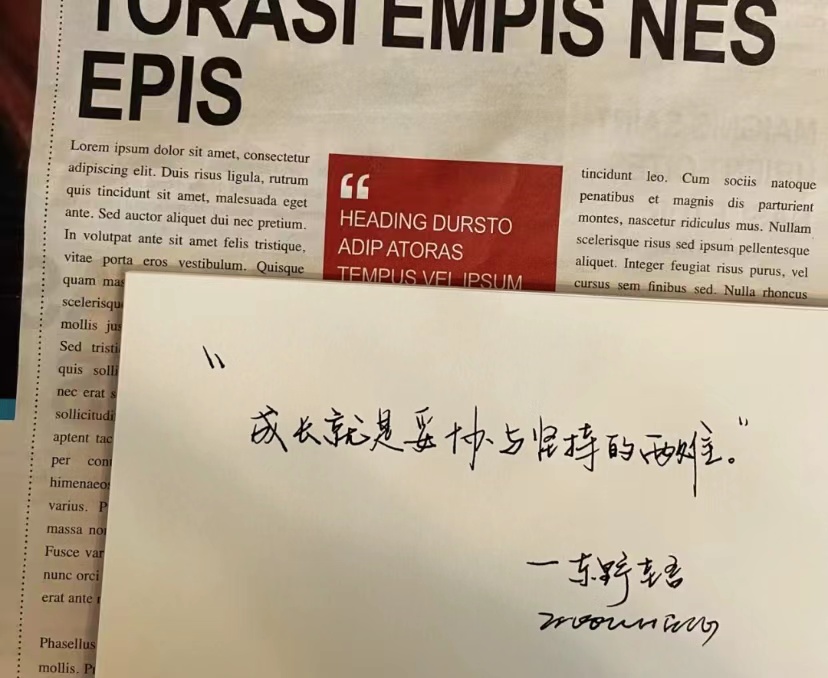 TORASI EMPIS NES
EPIS
Lorem ipsum dolor sit amet, consectetur
adipiscing elit. Duis risus ligula, rutrum
quis tincidunt sit amet, malesuada eget
ante. Sed auctor aliquet dui nec pretium.
In volutpat ante sit amet felis tristique,
vitae porta eros vestibulum. Quisque
quam
scelerisqu
mollis
Sed tristi
quis solli
nec erat
sollicitudi
aptent tac
per
himenaeo
varius.
massa
Fusce
nunc orci
erat ante
Phasellus
mollis.
“
HEADING DURSTO
ADIP ATORAS
TEMPUS VEL IPSUM
tincidunt leo. Cum sociis natoque
penatibus et magnis dis parturient
montes, nascetur ridiculus mus. Nullam
scelerisque risus sed ipsum pellentesque
aliquet. Integer feugiat risus purus, vel
cursus sem finibus sed. Nulla rhoncus
“成长就是妥协与坚持的两难。”
—东野圭吾